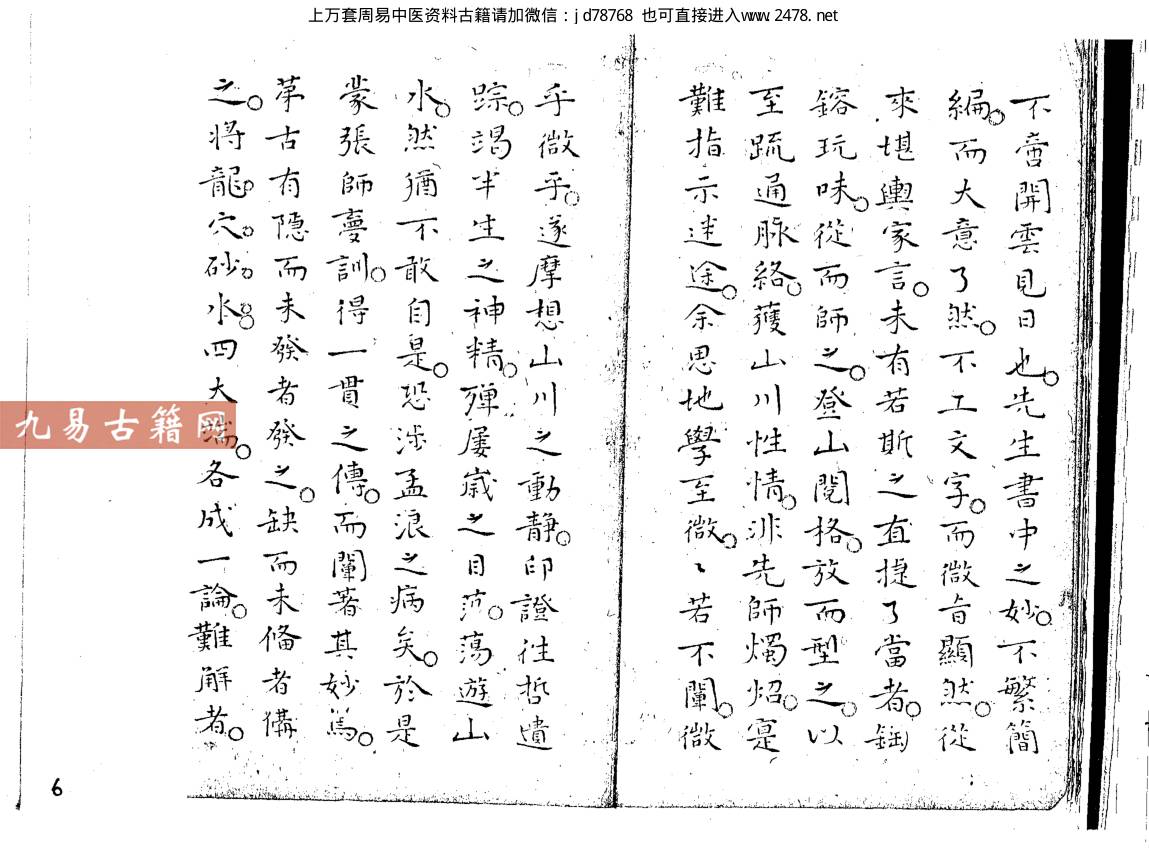 上万套周易中医资料古籍请加微信：jd78768 也可直接进入www.2478.net
不啻開雲見日也。先生書中之妙。不繁簡
編。而大意了然。不工文字。而微旨顯然。從
來堪輿家言。未有若斯之直捷了當者。
鎔玩味。從而師之。登山閱格。放而型之。以
至疏通脈絡。獲山川性情。非先師燭炤。寔
難指示迷途。余思地學至微。〻若不闡。微
乎微乎。遂摩想山川之動靜。印證往哲遺
踪。竭半生之神精。殫屢歲之目。蕩遊山
水。然猶不敢自是。恐涉孟浪之病矣。於是
蒙張師夢訓。得一貫之傳。而闡著其妙焉。
苐古有隱而未發者發之。缺而未俻者備
之。將龍。穴。砂。水。四大端。各成一論。難解者。
九易古籍网
6